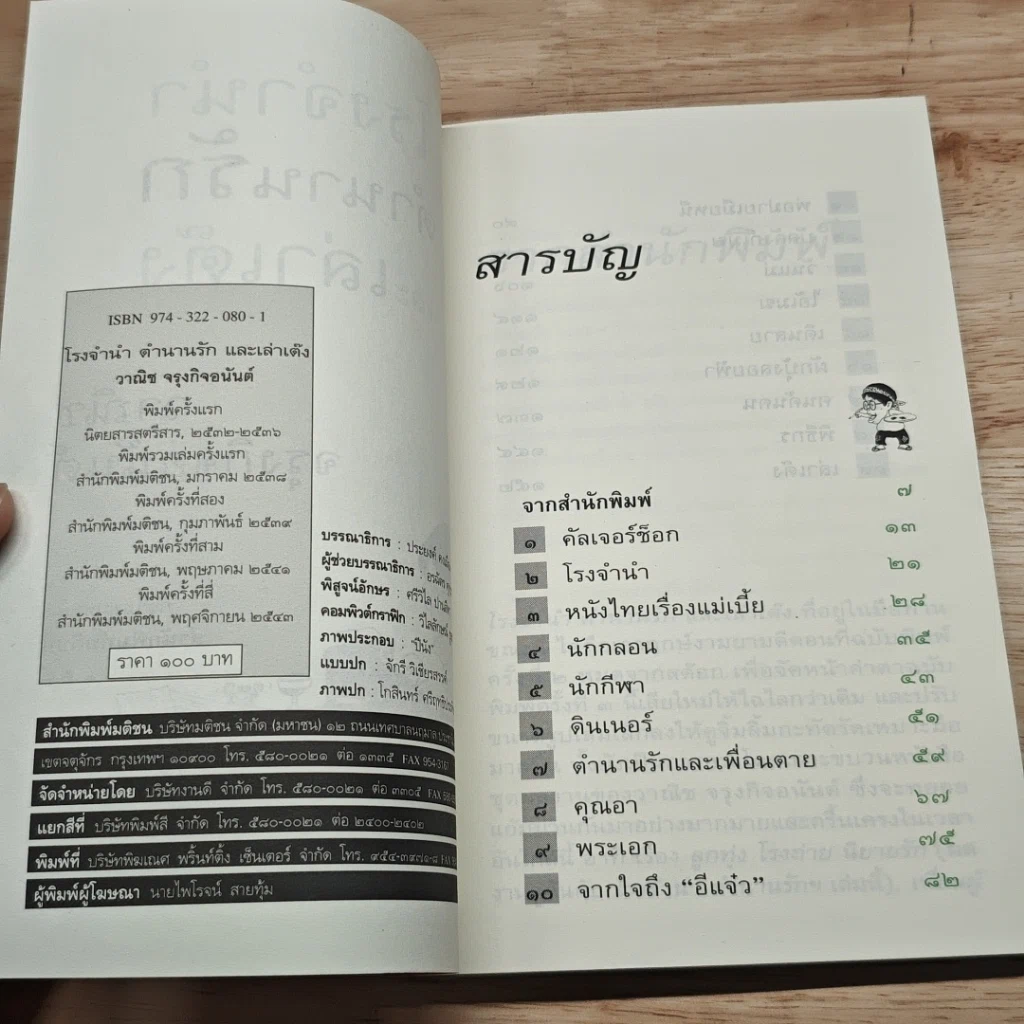 ISBN 974 - 322 - 080 - 1
โรงจำนำ ตำนานรัก และเล่าเต๊ง
วาณิช จรุงกิจอนันต์
พิมพ์ครั้งแรก
นิตยสารสตรีสาร, ๒๕๓๒-๒๕๓๖
พิมพ์รวมเล่มครั้งแรก
สำนักพิมพ์มติชน, มกราคม ๒๕๓๘
พิมพ์ครั้งที่สอง
สำนักพิมพ์มติชน, กุมภาพันธ์ ๒๕๓๙
พิมพ์ครั้งที่สาม
สำนักพิมพ์มติชน, พฤษภาคม ๒๕๔๑
พิมพ์ครั้งที่สี่
สำนักพิมพ์มติชน, พฤศจิกายน ๒๕๔๓
ราคา ๑๐๐ บาท
บรรณาธิการ : ประยงค์
ผู้ช่วยบรรณาธิการ :
พิสูจน์อักษร : ศรีวิไล
คอมพิวต์กราฟิก : วิไลลักษณ์
ภาพประกอบ : "ปีนัง"
แบบปก : จักรี วิเชียรสรรค์
ภาพปก : โกสินทร์
สำนักพิมพ์มติชน บริษัทมติชน จำกัด (มหาชน) ๑๒ ถนนเทศบาลนฤมาล
เขตจตุจักร กรุงเทพฯ ๑๐๙๐๐ โทร. ๕๘๐-๐๐๒๑ ต่อ ๑๓๓๕ FAX
จัดจำหน่ายโดย บริษัทงานดี จำกัด โทร. ๕๘๐-๐๐๒๑ ต่อ ๓๓๐๕ FAX
แยกสีที่ บริษัทพิมพ์สี จำกัด โทร. ๕๘๐-๐๐๒๑ ต่อ ๒๔๐๐-๒๔๐๒
พิมพ์ที่ บริษัทพิฆเณศ พริ้นท์ติ้ง เซ็นเตอร์ จำกัด โทร.
ผู้พิมพ์ผู้โฆษณา นายไพโรจน์ สายทุ้ม
สารบัญ
จากสำนักพิมพ์ ๗
๑ คัลเจอร์ช็อก ๑๓
๒ โรงจำนำ ๒๑
๓ หนังไทยเรื่องแม่เบี้ย ๒๘
๔ นักกลอน ๓๕
๕ นักกีฬา ๔๓
๖ ดินเนอร์ ๕๑
๗ ตำนานรักและเพื่อนตาย ๕๙
๘ คุณอา ๖๗
๙ พระเอก ๗๕
๑๐ จากใจถึง "อีแจ๋ว" ๘๒